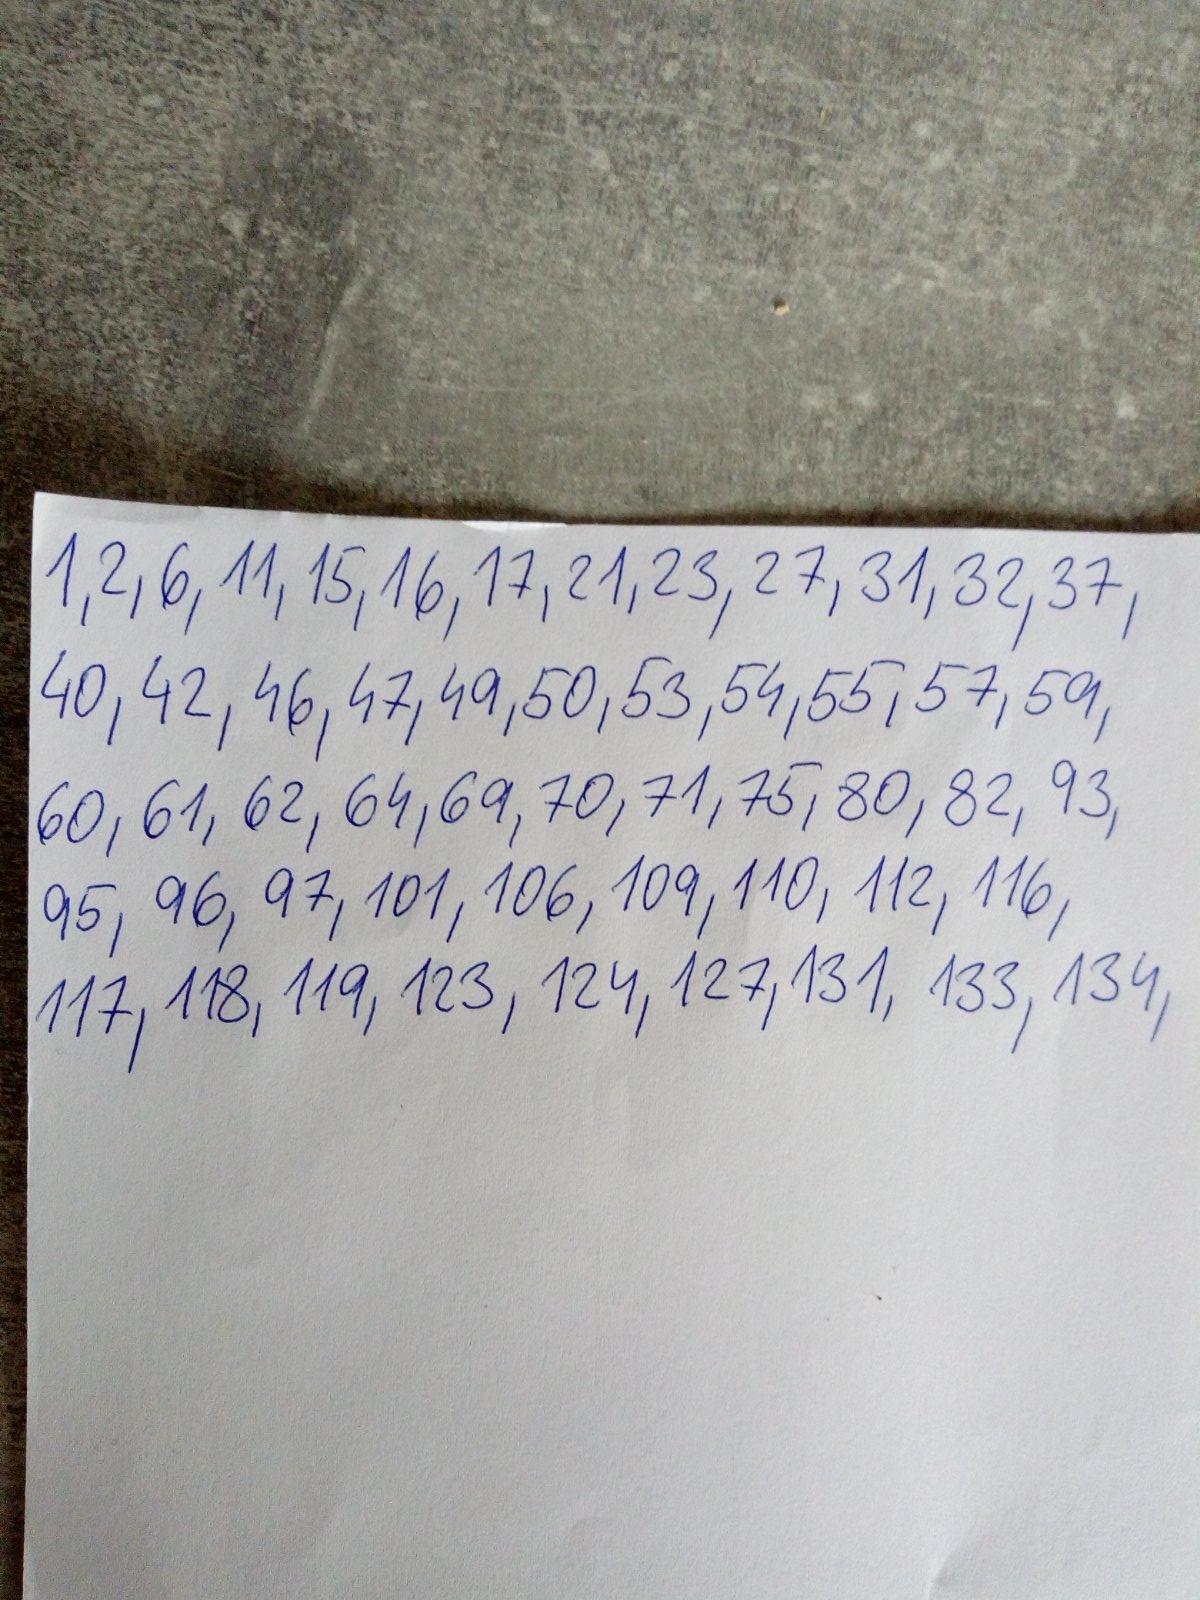 1, 2, 6, 11, 15, 16, 17, 21, 23, 27, 31, 32, 37,
40, 42, 46, 47, 49, 50, 53, 54, 55, 57, 59,
60, 61, 62, 64, 69, 70, 71, 75, 80, 82, 93,
95, 96, 97, 101, 106, 109, 110, 112, 116,
117, 118, 119, 123, 124, 127, 131, 133, 134,